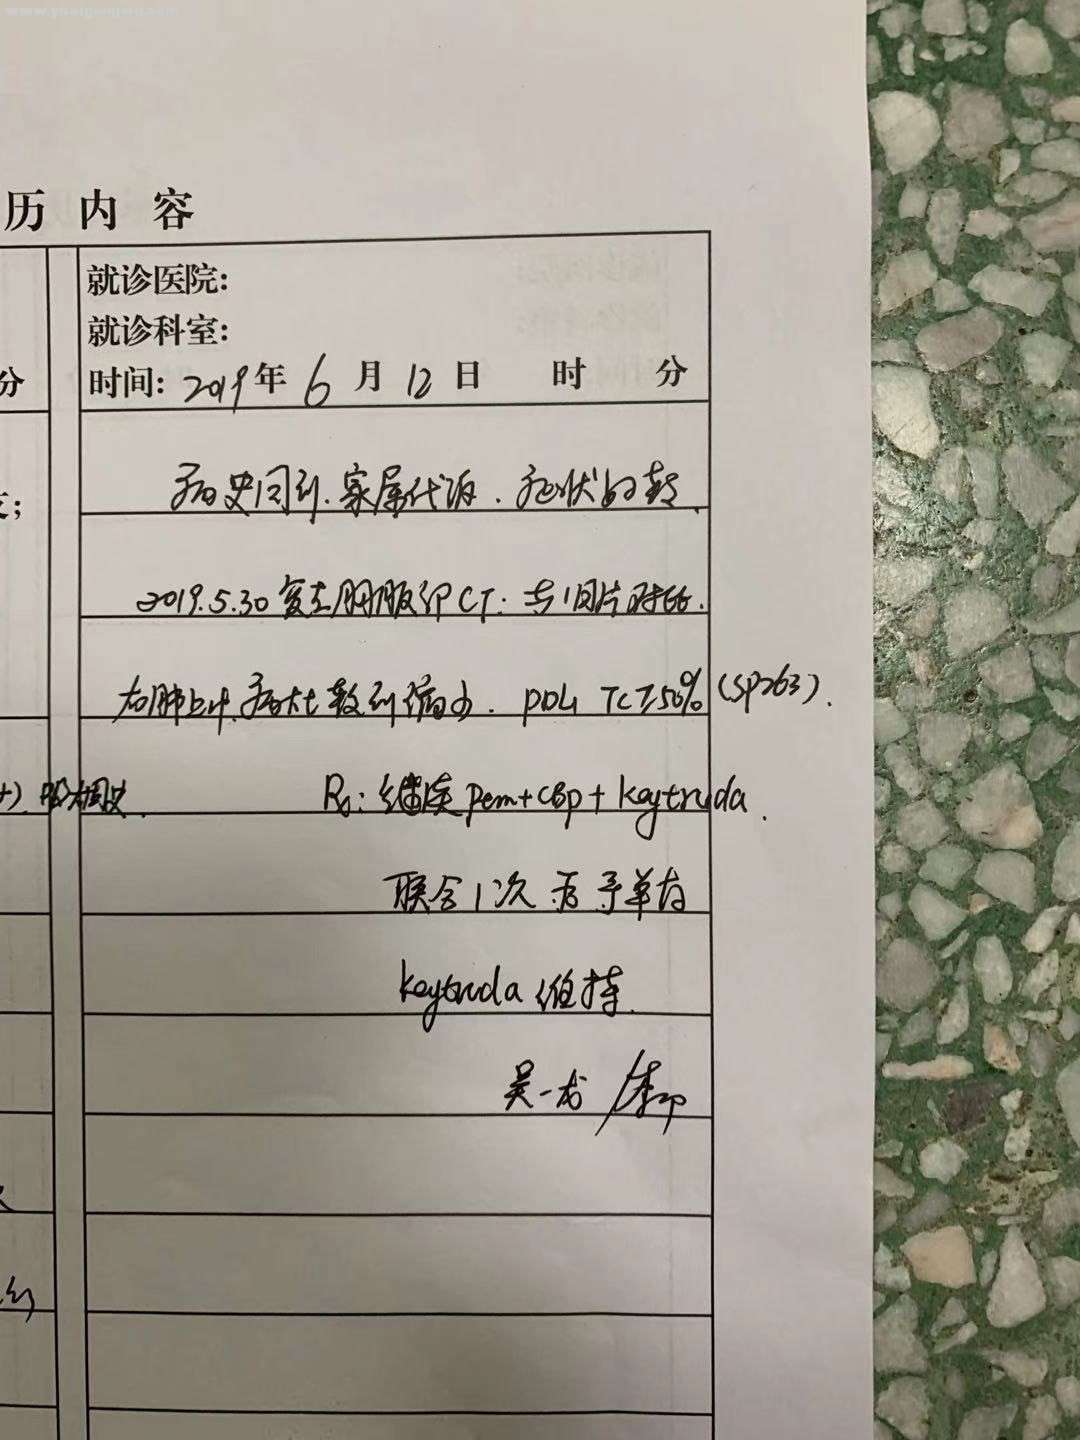 历内容
就诊医院:
就诊科室:
分
时间: 2019年 6 月 12 日 时 分
病史同前. 家属代诉. 症状好转.
支;
2019.5.30 复查胸腹部CT: 与旧片对比.
右肺上叶病灶较前缩小. PDL1 TC≥50% (SP263).
+)
Rx: 继续 pem+CBp+Keytruda.
联合1次 后予单药
Keytruda 维持.
吴一龙/